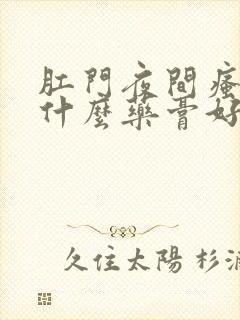 肛門夜間瘙
什麼藥膏好
久住太陽 杉浦